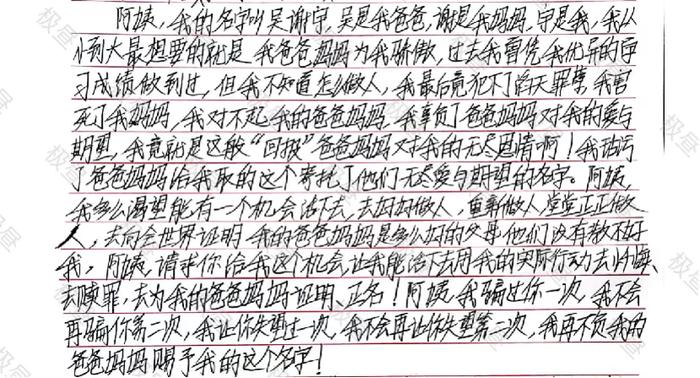 阿姨，我的名字叫吴谢宇，吴是我爸爸，谢是我妈妈，宇是我，我从
小到大最想要的就是我爸爸妈妈为我骄傲，过去我曾凭我优异的学
习成绩做到过，但我不知道怎么做人，我最后竟犯下了滔天罪孽，我害
死了我妈妈，我对不起我的爸爸妈妈，我辜负了爸爸妈妈对我的爱与
期望，我竟就是这般“回报”爸爸妈妈对我的无尽恩情啊！我玷污
了爸爸妈妈给我取的这个寄托了他们无尽爱与期望的名字。阿姨，
我多么渴望能有一个机会活下去，去好好做人，重新做人堂堂正正做
人，去向全世界证明我的爸爸妈妈是多么好的父母他们没有教不好
我，阿姨，请求你给我这个机会让我能活下去用我的实际行动去
去赎罪，去为我的爸爸妈妈证明、正名！阿姨，我骗过你一次，我不会
再骗你第二次，我让你失望过一次，我不会再让你失望第二次，我再不负我的
爸爸妈妈赐予我的这个名字！
极昼